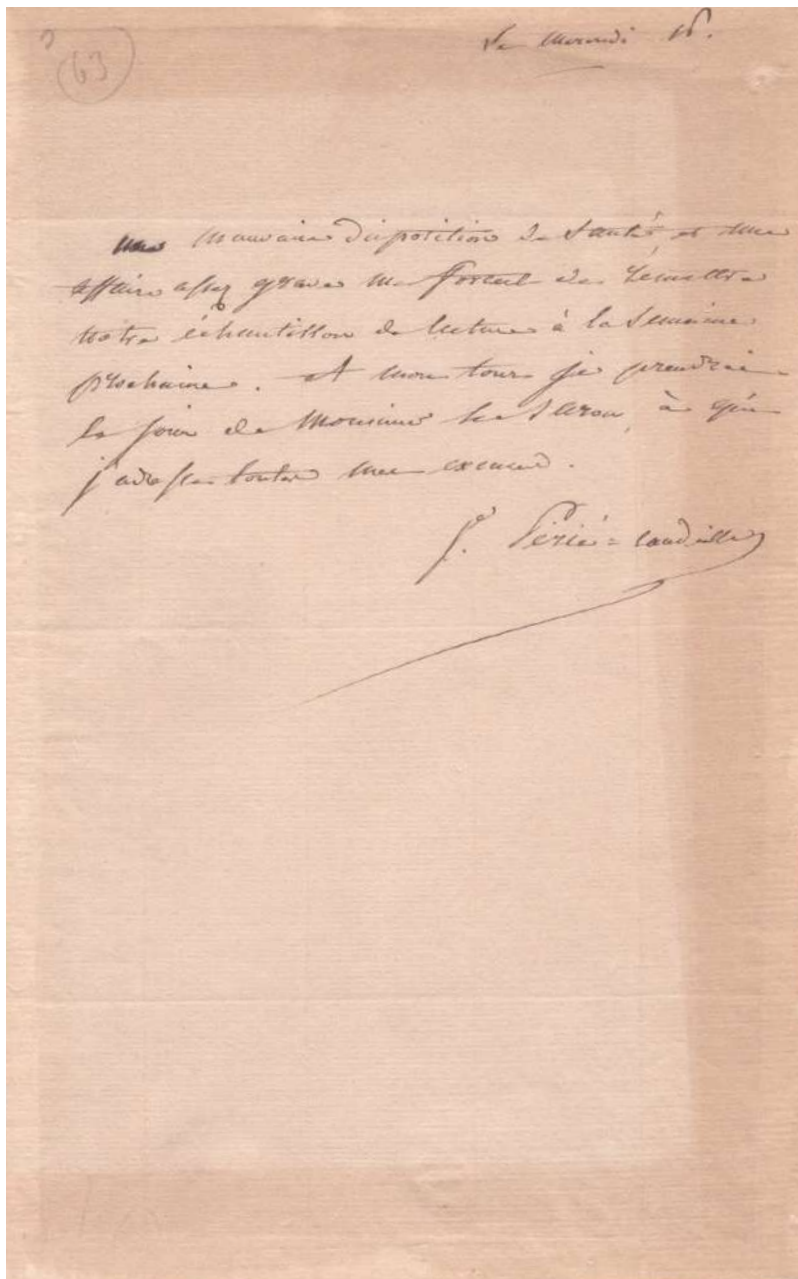 63
Le Mercredi 16.
une mauvaise disposition de Santé, et une
affaire assez grave me forcent de remettre
notre échantillon de lecture à la Semaine
prochaine. et mon tour je prendrai
le jour de Monsieur le Baron, à qui
j'adresse toutes mes excuses.
J. Périé = Candeille